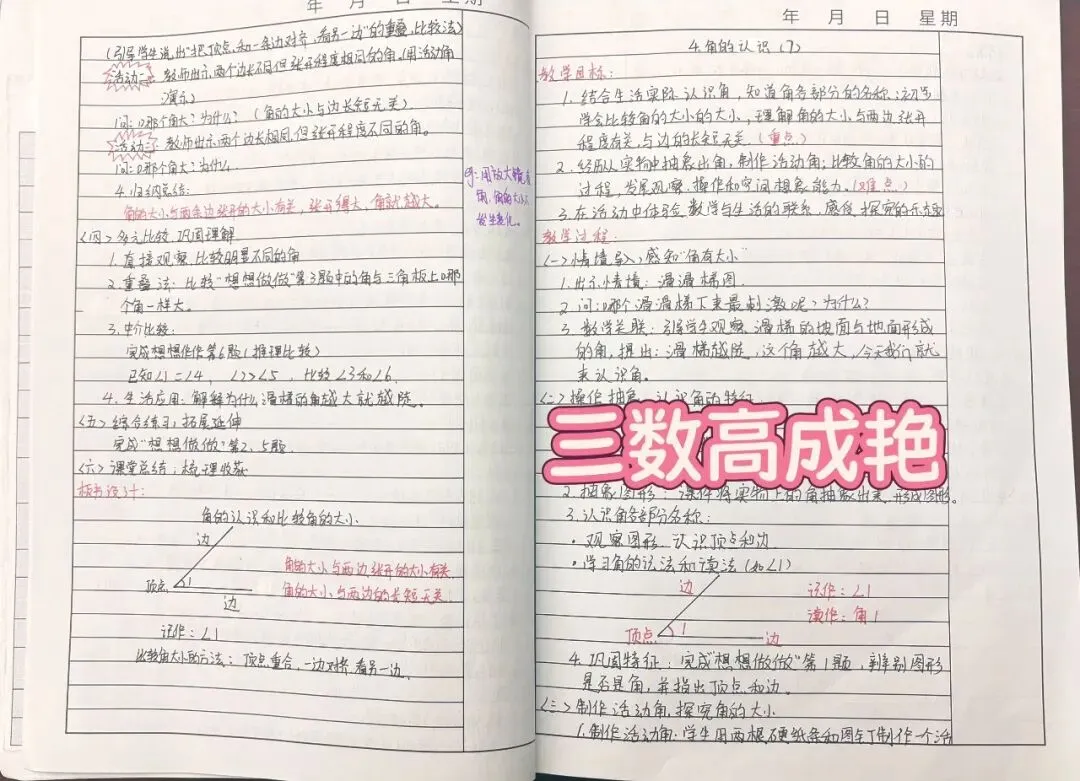 年 月 日 星期
(引导学生说出“把顶点和一条边对齐,看另一边”的重叠比较法)
活动一 教师出示两个边长不同但张开程度相同的角。(用活动角
演示)
问:哪个角大?为什么?(角的大小与边长短无关)
活动二 教师出示两个边长相同,但张开程度不同的角。
问:哪个角大?为什么.
4.归纳总结:
角的大小与两条边张开的大小有关,张开得大,角就越大。
(四)多元比较,巩固理解
1.直接观察:比较明显不同的角
2.重叠法:比较“想想做做”第3题中的角与三角板上哪
个角一样大。
3.中介比较:
完成想想做作第6题(推理比较)
已知∠1=∠4,∠2>∠5,比较∠3和∠6.
4.生活应用:解释为什么滑梯的角越大就越陡。
(五)综合练习,拓展延伸
完成“想想做做”第2、5题
(六)课堂总结:梳理收获
板书设计:
角的认识和比较角的大小
边
角的大小与两边张开的大小有关
顶点 1
角的大小与两边的长短无关
边
记作:∠1
比较角大小的方法:顶点重合,一边对齐,看另一边.
用放大镜看
角,角的大小
发生变化。
年 月 日 星期
4.角的认识(7)
教学目标:
1.结合生活实际认识角,知道角各部分的名称;初步
学会比较角的大小的大小,理解角的大小与两边张开
程度有关,与边的长短无关.(重点)
2.经历从实物中抽象出角,制作活动角;比较角的大小的
过程,发展观察、操作和空间想象能力。(难点)
3.在活动中体验数学与生活的联系,感受探究的乐趣
教学过程:
(一)情境导入,感知“角有大小”
1.出示情境:滑滑梯图.
2.问:哪个滑滑梯下来最刺激呢?为什么?
3.数学关联:引导学生观察滑梯的坡面与地面形成
的角,提出:滑梯越陡,这个角越大,今天我们就
来认识角。
(二)操作抽象,认识角的特征
三数高成艳
2.抽象图形:课件将实物上的角抽象出来,形成图形。
3.认识角各部分名称:
·观察图形,认识顶点和边
·学习角的记法和读法(如∠1)
边
记作:∠1
读作:角1
顶点 1 边
4.巩固特征:完成“想想做做”第1题,辨别图形
是否是角,并指出顶点和边。
(三)制作活动角,探究角的大小
1.制作活动角:学生用两根硬纸条和图钉制作一个活